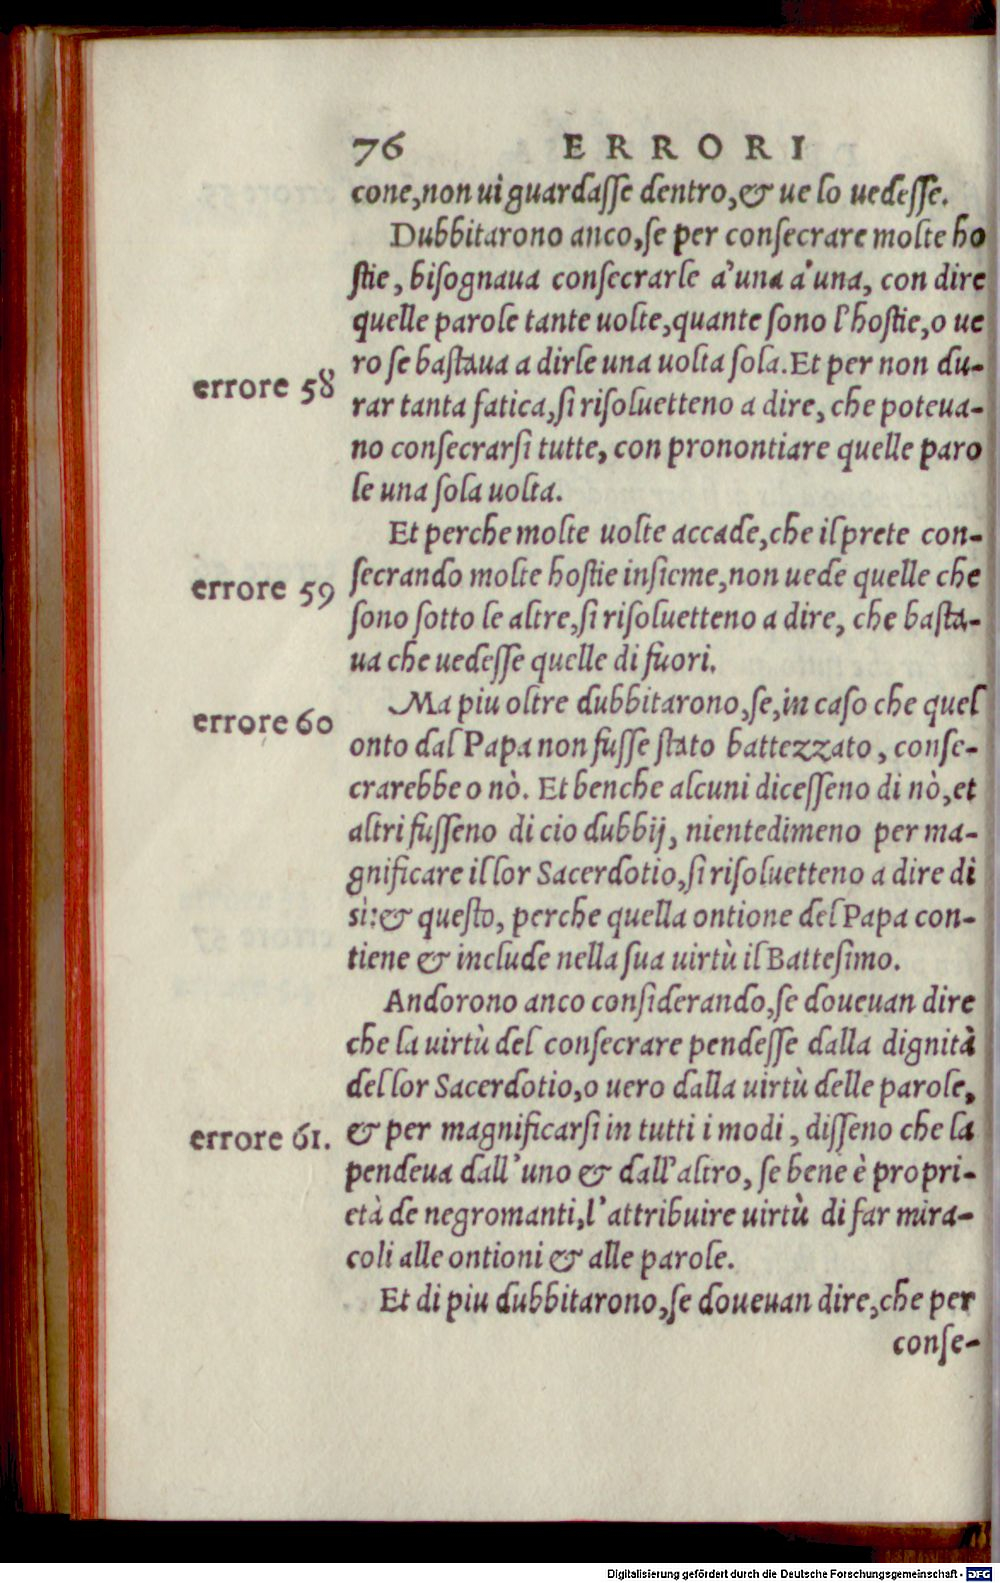 76 ERRORI
cone,non ui guardasse dentro,& ue lo uedesse.
Dubbitarono anco,se per consecrare molte ho
stie, bisognaua consecrarle a' una a' una, con dire
quelle parole tante uolte,quante sono l'hostie,o ue
ro se bastaua a dirle una uolta sola. Et per non du-
errore 58
rar tanta fatica,si risoluetteno a dire, che poteua-
no consecrarsi tutte, con pronontiare quelle paro
le una sola uolta.
Et perche molte uolte accade,che il prete con-
secrando molte hostie insieme,non uede quelle che
errore 59
sono sotto le altre,si risoluetteno a dire, che basta-
ua che uedesse quelle di fuori.
Ma piu oltre dubbitarono,se,in caso che quel
errore 60
onto dal Papa non fusse stato battezzato, conse-
crarebbe o nò. Et benche alcuni dicesseno di nò,et
altri fusseno di cio dubbij, nientedimeno per ma-
gnificare il lor Sacerdotio,si risoluetteno a dire di
sì:& questo, perche quella ontione del Papa con-
tiene & include nella sua uirtù il Battesimo.
Andorono anco considerando,se doueuan dire
che la uirtù del consecrare pendesse dalla dignità
del lor Sacerdotio,o uero dalla uirtù delle parole,
& per magnificarsi in tutti i modi, disseno che la
errore 61.
pendeua dall'uno & dall'altro, se bene è propri-
età de negromanti,l'attribuire uirtù di far mira-
coli alle ontioni & alle parole.
Et di piu dubbitarono,se doueuan dire,che per
conse-
Digitalisierung gefördert durch die Deutsche Forschungsgemeinschaft - DFG